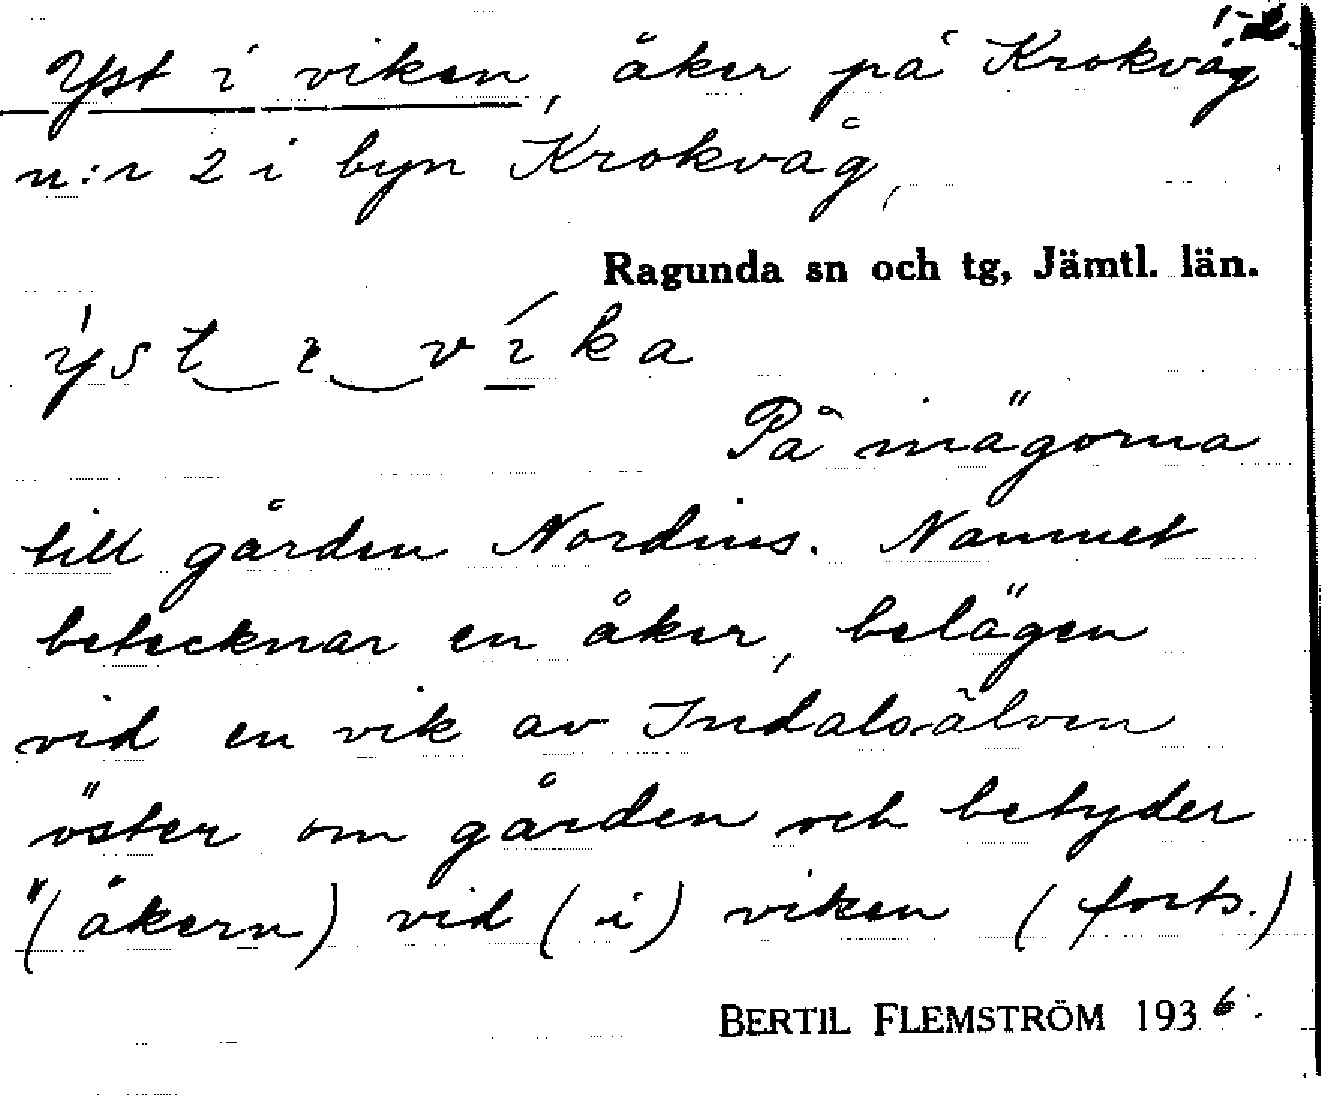 1-2
Yst i viken, åker på Krokvåg
n:r 2 i byn Krokvåg,
Ragunda sn och tg, Jämtl. län.
ýst ɩ vɩ́ka
På inägorna
till gården Nordins. Namnet
betecknar en åker, belägen
vid en vik av Indalsälven
öster om gården och betyder
"(åkern) vid (i) viken (forts.)
BERTIL FLEMSTRÖM 1936